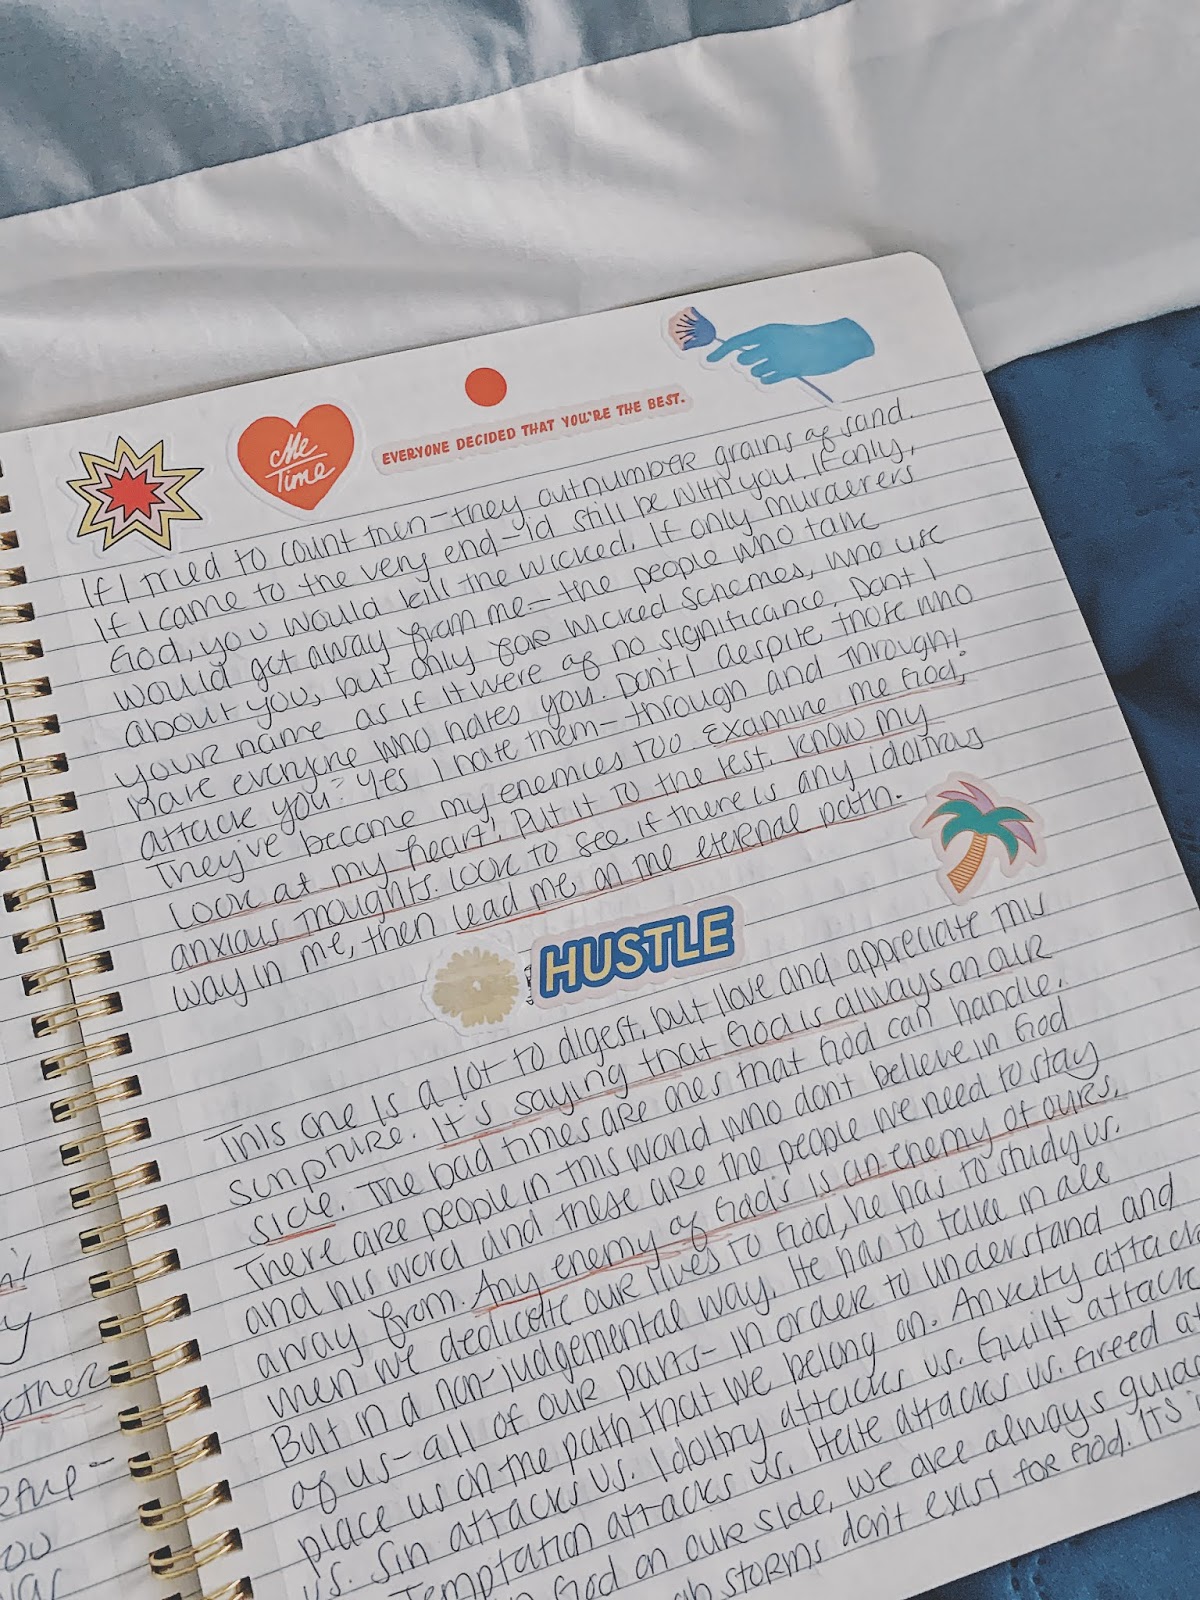 Me
Time
EVERYONE DECIDED THAT YOU'RE THE BEST.
If I tried to count them-they outnumber grains of sand.
If I came to the very end-id still be with you. If only,
God, you would kill the wicked. If only murderers
would get away from me- the people who talk
about you, but only for wicked schemes, who use
your name as if it were of no significance. Dont I
hate everyone who hates you. Don't I despite those who
attack you? Yes I hate them- through and through!
They've become my enemies too. Examine me God,
Look at my heart! Put it to the test. Know my
anxious thoughts. Look to see if there is any idolitrus
way in me, then lead me on the eternal path.
HUSTLE
This one is a lot to digest, but I love and appreciate this
scripture. It's saying that God is always on our
side. The bad times are ones that God can handle.
There are people in this world who don't believe in God
and his word and these are the people we need to stay
away from. Any enemy of God's is an enemy of ours,
when we dedicate our lives to God, he has to study us.
But in a non-judgemental way. He has to take in all
of us-all of our parts- in order to understand and
place us on the path that we belong on. Anxiety attacks
us. Sin attacks us. Idoltry attacks us. Guilt attack
Temptation attacks us. Hate attacks us. Greed at
God on our side, we are always guid
storms dont exist for God. Its i
n!
y
gether
eful-
ou